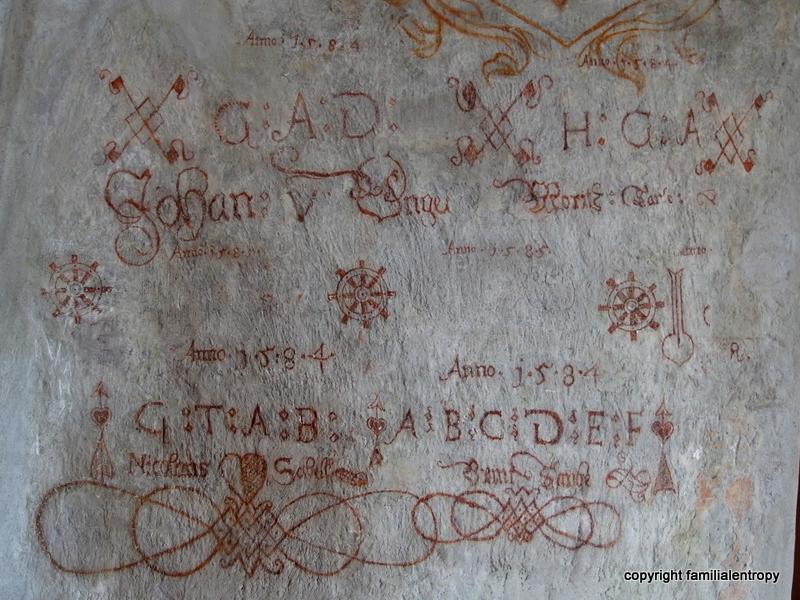 Anno · 1 · 5 · 8 · 4
Anno · 1 · 5 · 8 · 4
G : A : D :
H : G : A
Johan : V
Moritz :
Anno · 1 · 5 · 8
Anno · 1 · 5 · 8 · 5 ·
Anno · 1 · 5 · 8 · 4 ·
Anno · 1 · 5 · 8 · 4
R.
G : T : A : B :
A : B : C : D : E : F
Nicolaus
copyright familialentropy